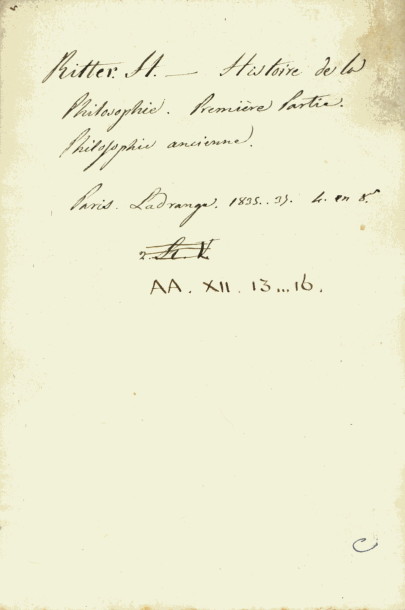 Ritter. H. — Histoire de la
Philosophie. Première Partie.
Philosophie ancienne.
Paris. Ladrange. 1835..37. 4. en 8.°
AA. XII. 13...16.
C